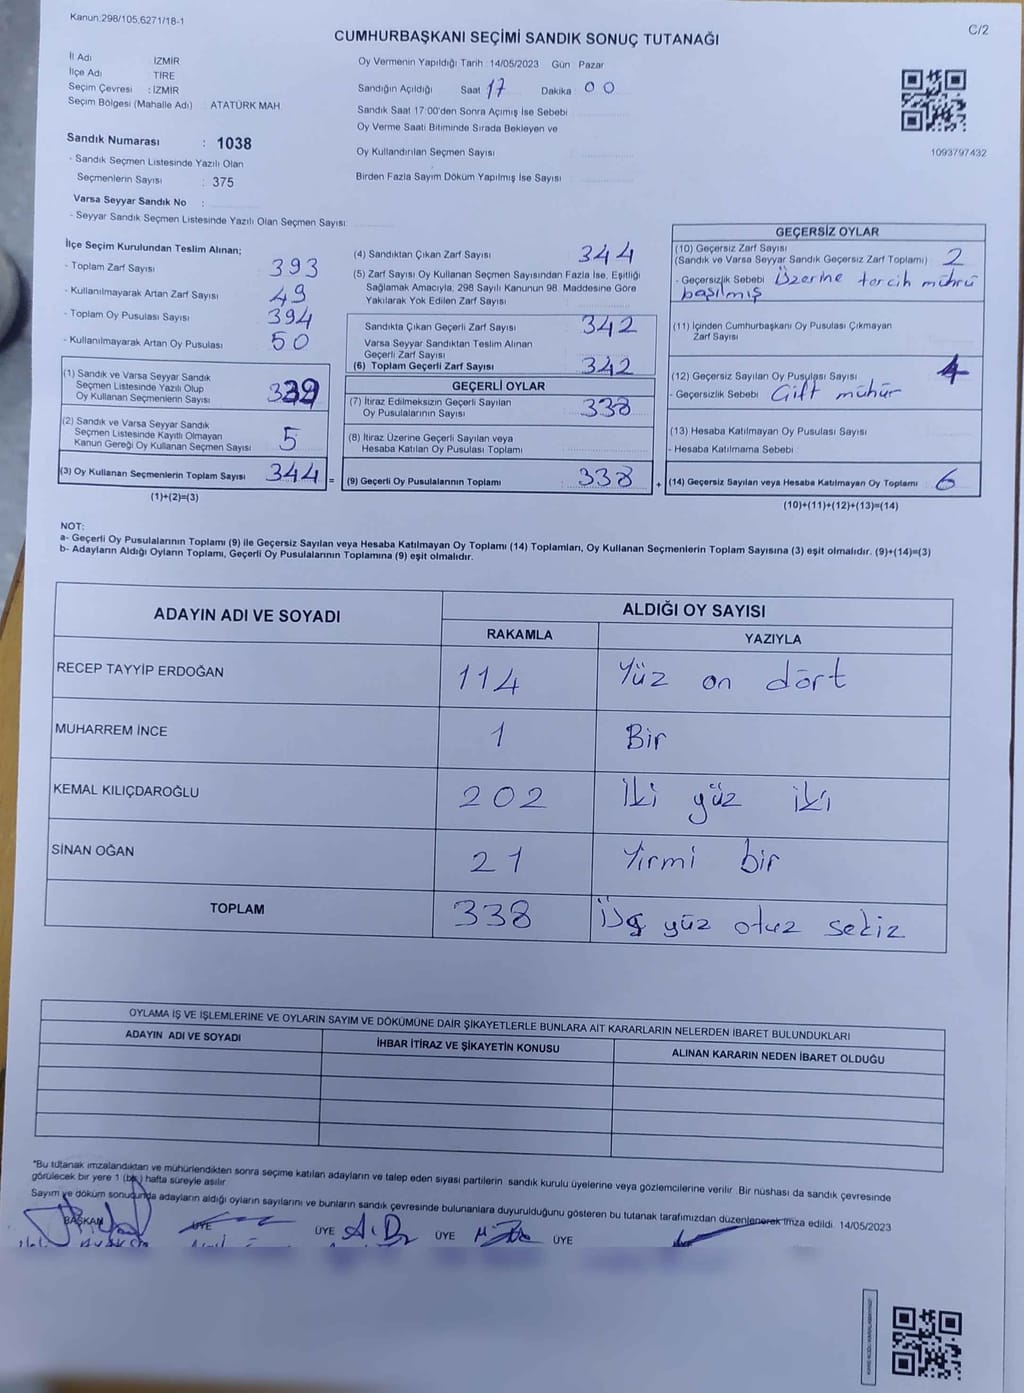 Kanun.298/105,6271/18-1
C/2
CUMHURBAŞKANI SEÇİMİ SANDIK SONUÇ TUTANAĞI
İl Adı İZMİR
İlçe Adı TİRE
Seçim Çevresi : İZMİR
Seçim Bölgesi (Mahalle Adı) : ATATÜRK MAH
Sandık Numarası : 1038
- Sandık Seçmen Listesinde Yazılı Olan
Seçmenlerin Sayısı : 375
Varsa Seyyar Sandık No :
- Seyyar Sandık Seçmen Listesinde Yazılı Olan Seçmen Sayısı:
Oy Vermenin Yapıldığı Tarih 14/05/2023 Gün Pazar
Sandığın Açıldığı Saat 17 Dakika 00
Sandık Saat 17:00'den Sonra Açımış İse Sebebi
Oy Verme Saati Bitiminde Sırada Bekleyen ve
Oy Kullandırılan Seçmen Sayısı
Birden Fazla Sayım Döküm Yapılmış İse Sayısı
1093797432
İlçe Seçim Kurulundan Teslim Alınan;
- Toplam Zarf Sayısı 393
- Kullanılmayarak Artan Zarf Sayısı 49
- Toplam Oy Pusulası Sayısı 394
- Kullanılmayarak Artan Oy Pusulası 50
(1) Sandık ve Varsa Seyyar Sandık
Seçmen Listesinde Yazılı Olup
Oy Kullanan Seçmenlerin Sayısı 339
(2) Sandık ve Varsa Seyyar Sandık
Seçmen Listesinde Kayıtlı Olmayan
Kanun Gereği Oy Kullanan Seçmen Sayısı 5
(3) Oy Kullanan Seçmenlerin Toplam Sayısı 344 =
(1)+(2)=(3)
(4) Sandıktan Çıkan Zarf Sayısı 344
(5) Zarf Sayısı Oy Kullanan Seçmen Sayısından Fazla İse, Eşitliği
Sağlamak Amacıyla, 298 Sayılı Kanunun 98. Maddesine Göre
Yakılarak Yok Edilen Zarf Sayısı
Sandıkta Çıkan Geçerli Zarf Sayısı 342
Varsa Seyyar Sandıktan Teslim Alınan
Geçerli Zarf Sayısı
(6) Toplam Geçerli Zarf Sayısı 342
GEÇERLİ OYLAR
(7) İtiraz Edilmeksizin Geçerli Sayılan
Oy Pusulalarının Sayısı 338
(8) İtiraz Üzerine Geçerli Sayılan veya
Hesaba Katılan Oy Pusulası Toplamı
(9) Geçerli Oy Pusulalarının Toplamı 338 +
GEÇERSİZ OYLAR
(10) Geçersiz Zarf Sayısı
(Sandık ve Varsa Seyyar Sandık Geçersiz Zarf Toplamı) 2
- Geçersizlik Sebebi Üzerine tercih mührü
basılmış
(11) İçinden Cumhurbaşkanı Oy Pusulası Çıkmayan
Zarf Sayısı
(12) Geçersiz Sayılan Oy Pusulası Sayısı 4
- Geçersizlik Sebebi Çift mühür
(13) Hesaba Katılmayan Oy Pusulası Sayısı
- Hesaba Katılmama Sebebi
(14) Geçersiz Sayılan veya Hesaba Katılmayan Oy Toplamı 6
(10)+(11)+(12)+(13)=(14)
NOT:
a- Geçerli Oy Pusulalarının Toplamı (9) ile Geçersiz Sayılan veya Hesaba Katılmayan Oy Toplamı (14) Toplamları, Oy Kullanan Seçmenlerin Toplam Sayısına (3) eşit olmalıdır. (9)+(14)=(3)
b- Adayların Aldığı Oyların Toplamı, Geçerli Oy Pusulalarının Toplamına (9) eşit olmalıdır.
ADAYIN ADI VE SOYADI ALDIĞI OY SAYISI
RAKAMLA YAZIYLA
RECEP TAYYİP ERDOĞAN 114 Yüz on dört
MUHARREM İNCE 1 Bir
KEMAL KILIÇDAROĞLU 202 İki yüz iki
SİNAN OĞAN 21 Yirmi bir
TOPLAM 338 Üç yüz otuz sekiz
OYLAMA İŞ VE İŞLEMLERİNE VE OYLARIN SAYIM VE DÖKÜMÜNE DAİR ŞİKAYETLERLE BUNLARA AİT KARARLARIN NELERDEN İBARET BULUNDUKLARI
ADAYIN ADI VE SOYADI İHBAR İTİRAZ VE ŞİKAYETİN KONUSU ALINAN KARARIN NEDEN İBARET OLDUĞU
*Bu tutanak imzalandıktan ve mühürlendikten sonra seçime katılan adayların ve talep eden siyasi partilerin sandık kurulu üyelerine veya gözlemcilerine verilir. Bir nüshası da sandık çevresinde
görülecek bir yere 1 (bir) hafta süreyle asılır
Sayım ve döküm sonucunda adayların aldığı oyların sayılarını ve bunların sandık çevresinde bulunanlara duyurulduğunu gösteren bu tutanak tarafımızdan düzenlenerek imza edildi. 14/05/2023
BAŞKAN ÜYE ÜYE ÜYE ÜYE